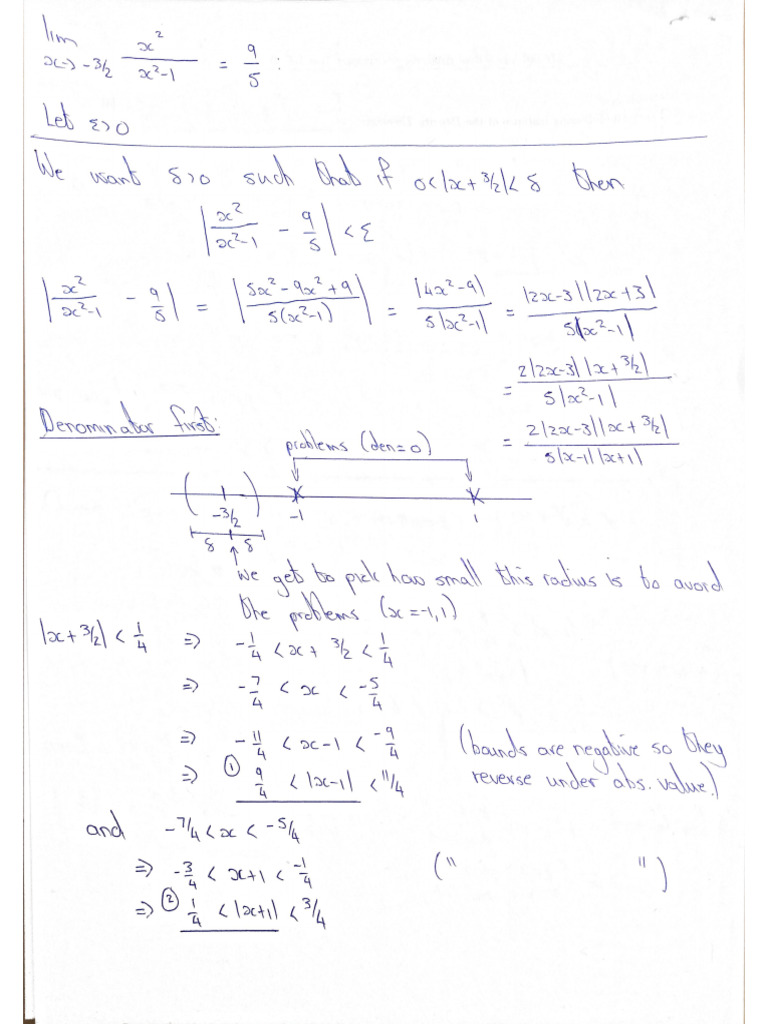 lim x→-3/2 x²/(x²-1) = 9/5 :
Let ε>0
We want δ>0 such that if 0<|x+3/2|<δ then
|x²/(x²-1) - 9/5| < ε
|x²/(x²-1) - 9/5| = |(5x²-9x²+9)/(5(x²-1))| = |4x²-9|/(5|x²-1|) = |2x-3||2x+3|/(5|x²-1|)
= 2|2x-3||x+3/2|/(5|x²-1|)
= 2|2x-3||x+3/2|/(5|x-1||x+1|)
Denominator first:
problems (den=0)
-3/2 -1 1
δ δ
we get to pick how small this radius is to avoid
the problems (x=-1,1)
|x+3/2| < 1/4 ⇒ -1/4 < x+3/2 < 1/4
⇒ -7/4 < x < -5/4
⇒ -11/4 < x-1 < -9/4 (bounds are negative so they
⇒ ① 9/4 < |x-1| < 11/4 reverse under abs. value.)
and -7/4 < x < -5/4
⇒ -3/4 < x+1 < -1/4 (" ")
⇒ ② 1/4 < |x+1| < 3/4